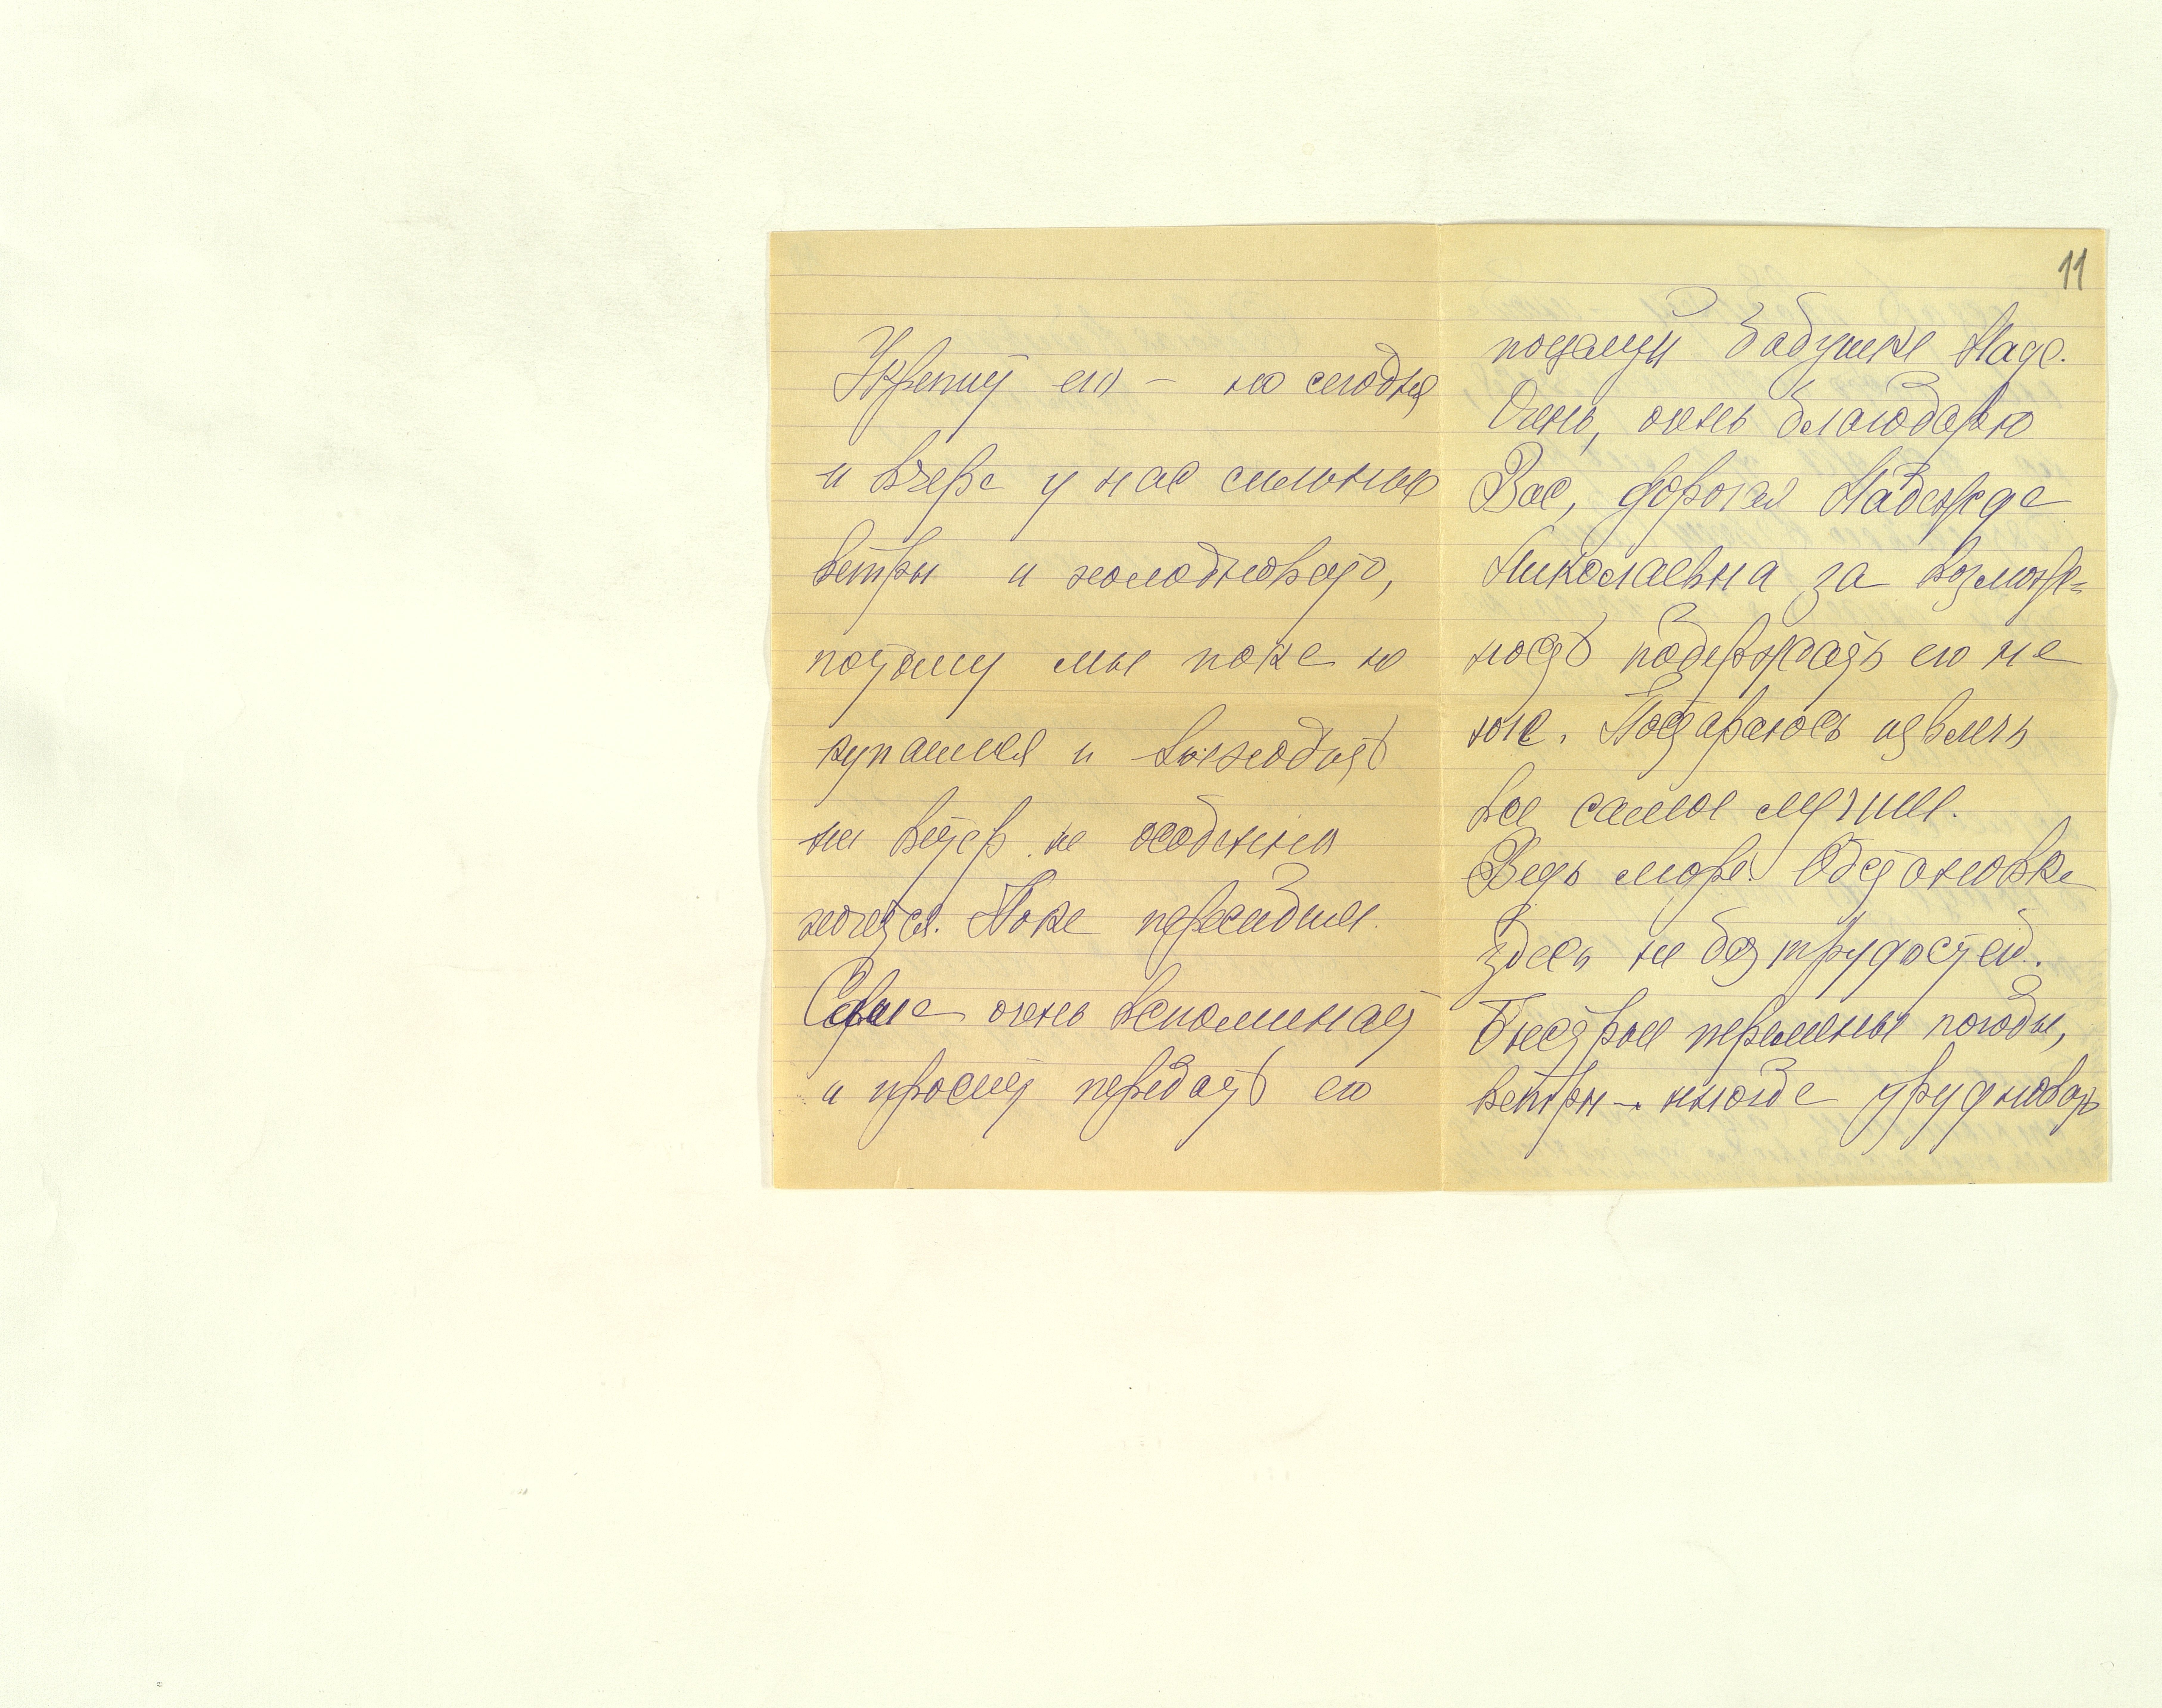 Укрепит его – но сегодня
и вчера у нас сильные
ветры и холодновато,
потому мы пока не
купаемся и выходить
на ветер не особенно
хочется. Пока пересидим.
Саша очень вспоминает
и просит передать его
11
поцелуй Бабушке Наде.
Очень, очень благодарю
Вас, дорогая Надежда
Николаевна за возмож-
ность подержать его на
юге. Постараюсь извлечь
все самое лучшее.
Ведь море! Обстановка
здесь не без трудостей.
Быстрые перемены погоды,
ветры – иногда трудновато